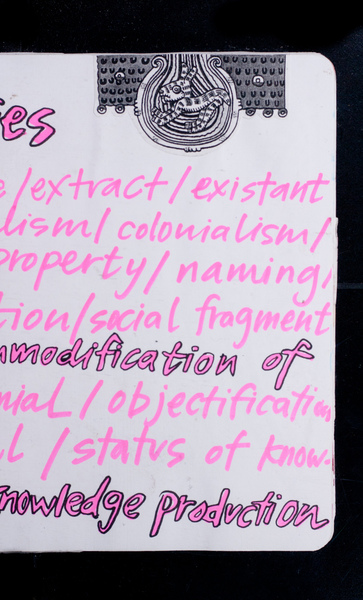 ies
e/extract/existant
lism/colonialism/
property/naming/
tion/social fragment
mmodification of
nial/objectification
l/status of know-
knowledge production